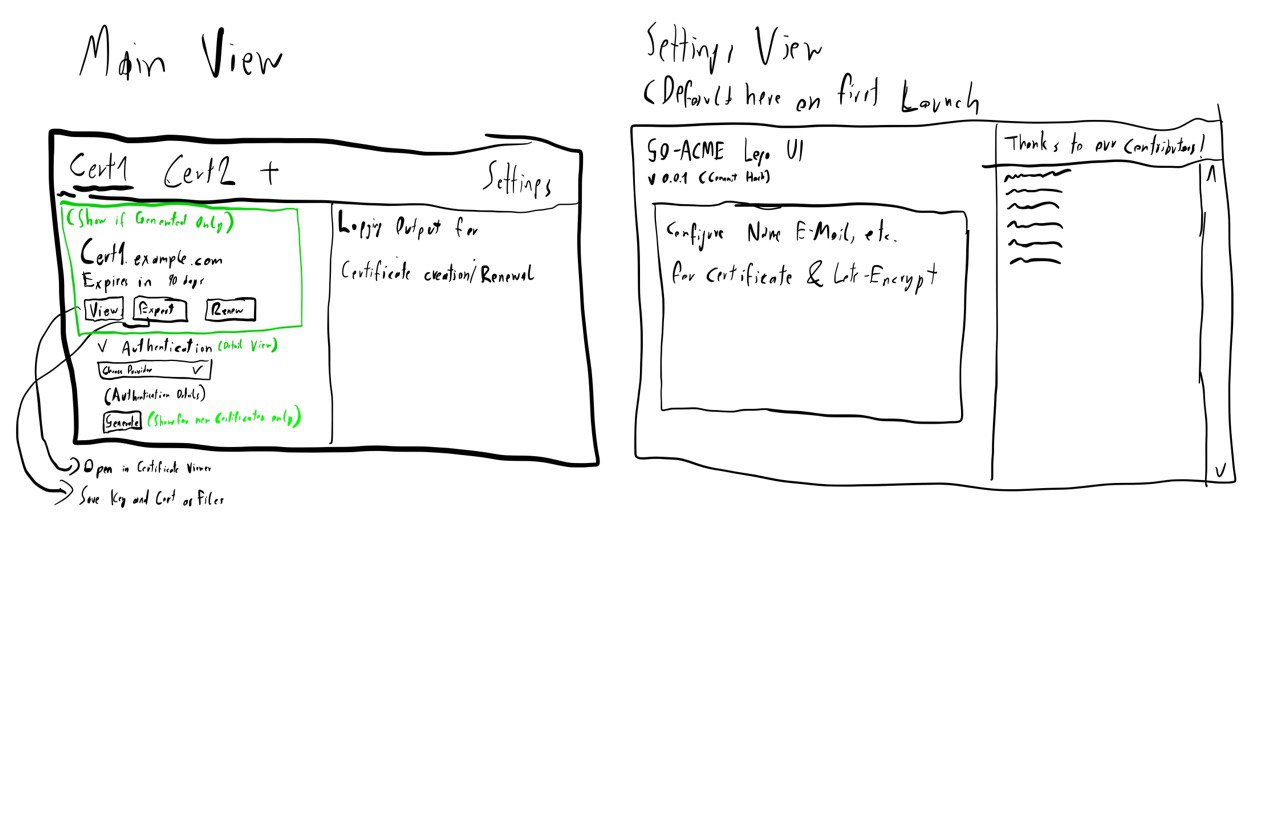 Main View
Cert1 Cert2 + Settings
(Show if Generated Only)
Cert1.example.com
Expires in 90 days
View Export Renew
✓ Authentication (Detail View)
Choose Provider
(Authentication Details)
Generate (Show for new Certificates only)
Logging Output for
Certificate creation/Renewal
Open in Certificate Viewer
Save Key and Cert as Files
Settings View
(Default here on first Launch
GO-ACME Lego UI
v 0.0.1 (Commit Hash)
Configure Name E-Mail, etc.
for certificate & Lets-Encrypt
Thanks to our Contributors!